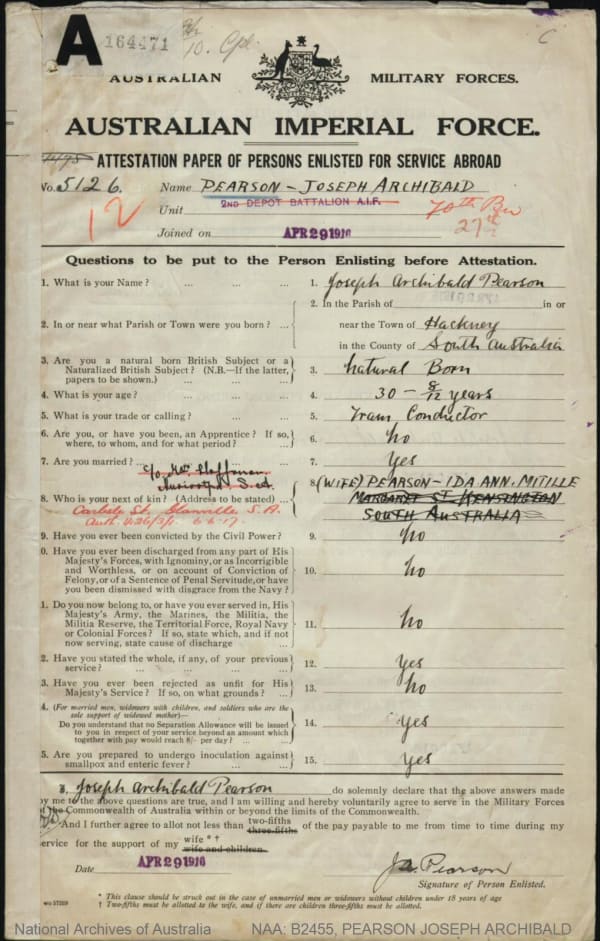 A 164471 10. Cpl. C
AUSTRALIAN MILITARY FORCES.
AUSTRALIAN IMPERIAL FORCE.
ATTESTATION PAPER OF PERSONS ENLISTED FOR SERVICE ABROAD
No. 5126. Name PEARSON - JOSEPH ARCHIBALD
12 Unit 2ND DEPOT BATTALION A.I.F. 27th
Joined on APR 29 1916
Questions to be put to the Person Enlisting before Attestation.
1. What is your Name? ... ... ... 1. Joseph Archibald Pearson
2. In the Parish of in or
2. In or near what Parish or Town were you born? ... near the Town of Hackney
in the County of South Australia
3. Are you a natural born British Subject or a
Naturalized British Subject? (N.B.—If the latter,
papers to be shown.) ... ... ... 3. Natural Born
4. What is your age? ... ... ... 4. 30 - 8/12 years
5. What is your trade or calling? ... ... 5. Tram Conductor
6. Are you, or have you been, an Apprentice? If so,
where, to whom, and for what period? ... 6. No
7. Are you married? ... 7. Yes
8. (WIFE) PEARSON - IDA ANN. MITILLE
8. Who is your next of kin? (Address to be stated) ... MARGARET ST KENSINGTON
Carlisle St. Glanville S.A. SOUTH AUSTRALIA
6.6.17.
9. Have you ever been convicted by the Civil Power? 9. No
0. Have you ever been discharged from any part of His
Majesty's Forces, with Ignominy, or as Incorrigible
and Worthless, or on account of Conviction of
Felony, or of a Sentence of Penal Servitude, or have
you been dismissed with disgrace from the Navy? 10. No
1. Do you now belong to, or have you ever served in, His
Majesty's Army, the Marines, the Militia, the
Militia Reserve, the Territorial Force, Royal Navy
or Colonial Forces? If so, state which, and if not
now serving, state cause of discharge 11. No
2. Have you stated the whole, if any, of your previous
service? ... ... ... 12. Yes
3. Have you ever been rejected as unfit for His
Majesty's Service? If so, on what grounds? ... 13. No
4. (For married men, widowers with children, and soldiers who are the
sole support of widowed mother)—
Do you understand that no Separation Allowance will be issued
to you in respect of your service beyond an amount which
together with pay would reach 8/- per day? ... ... 14. Yes
5. Are you prepared to undergo inoculation against
smallpox and enteric fever? ... ... 15. Yes
I, Joseph Archibald Pearson do solemnly declare that the above answers made
by me to the above questions are true, and I am willing and hereby voluntarily agree to serve in the Military Forces
of the Commonwealth of Australia within or beyond the limits of the Commonwealth.
And I further agree to allot not less than two-fifths three-fifths of the pay payable to me from time to time during my
service for the support of my wife *† wife and children.
Date APR 29 1916 J.A. Pearson
Signature of Person Enlisted.
* This clause should be struck out in the case of unmarried men or widowers without children under 18 years of age
† Two-fifths must be allotted to the wife, and if there are children three-fifths must be allotted.
National Archives of Australia NAA: B2455, PEARSON JOSEPH ARCHIBALD